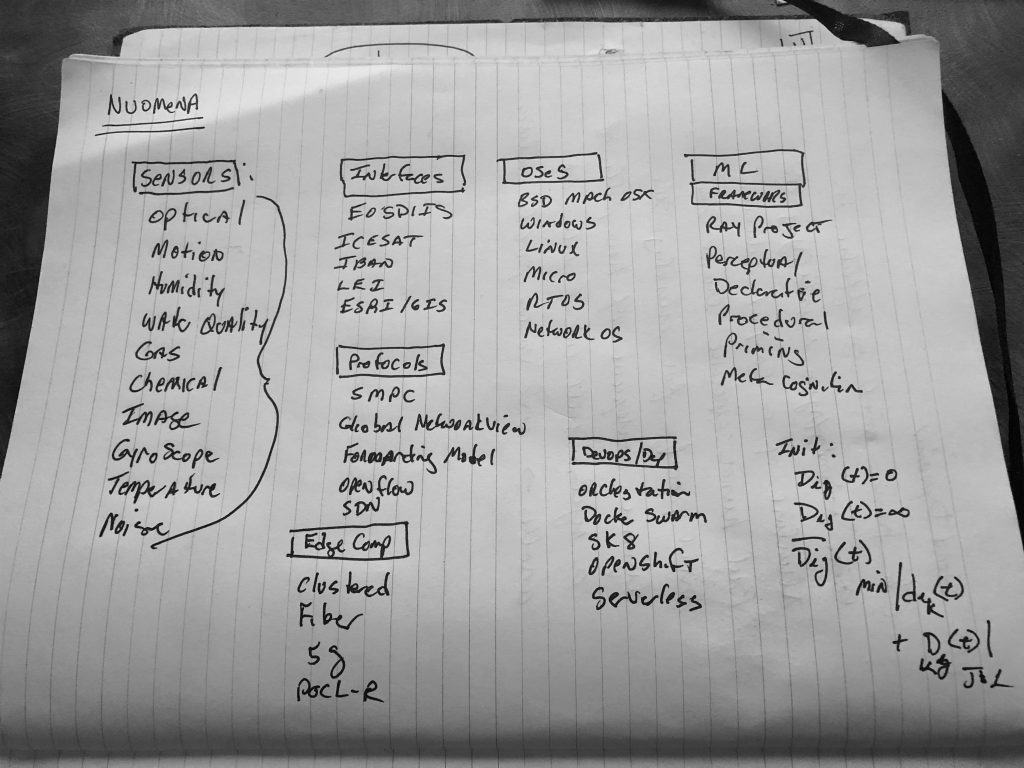 NUOMENA
SENSORS:
OPTICAL
Motion
Humidity
Quality
GAS
CHemICAL
IMAGE
GyroScope
Temperature
Noise
Interfaces
EOSDIIS
ICESAT
IBAN
LEI
ESRI/GIS
Protocols
SMPC
Global NetworkView
Forwarding Model
OPENflow
SDN
Edge Comp
Clustered
Fiber
5g
POCL-R
OSeS
BSD MACH OSX
WINDOWS
LINUX
MICRO
RTOS
NetworkOS
Devops/Dep
ORchestration
Docker SWARM
SK8
OPENShifT
Serverless
ML
RAY Project
Perceptual
Declarative
Procedural
Priming
Meta Cognition
Init:
(t)=0
(t)=∞
(t)
min
(t)
+ D(t)|